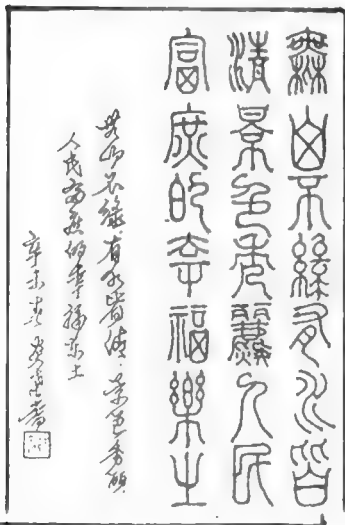 無山不綠有水皆
清景色秀麗人民
富庶的幸福樂土
無山不綠.有水皆清.景色秀麗
人民富庶的幸福乐土
辛未春